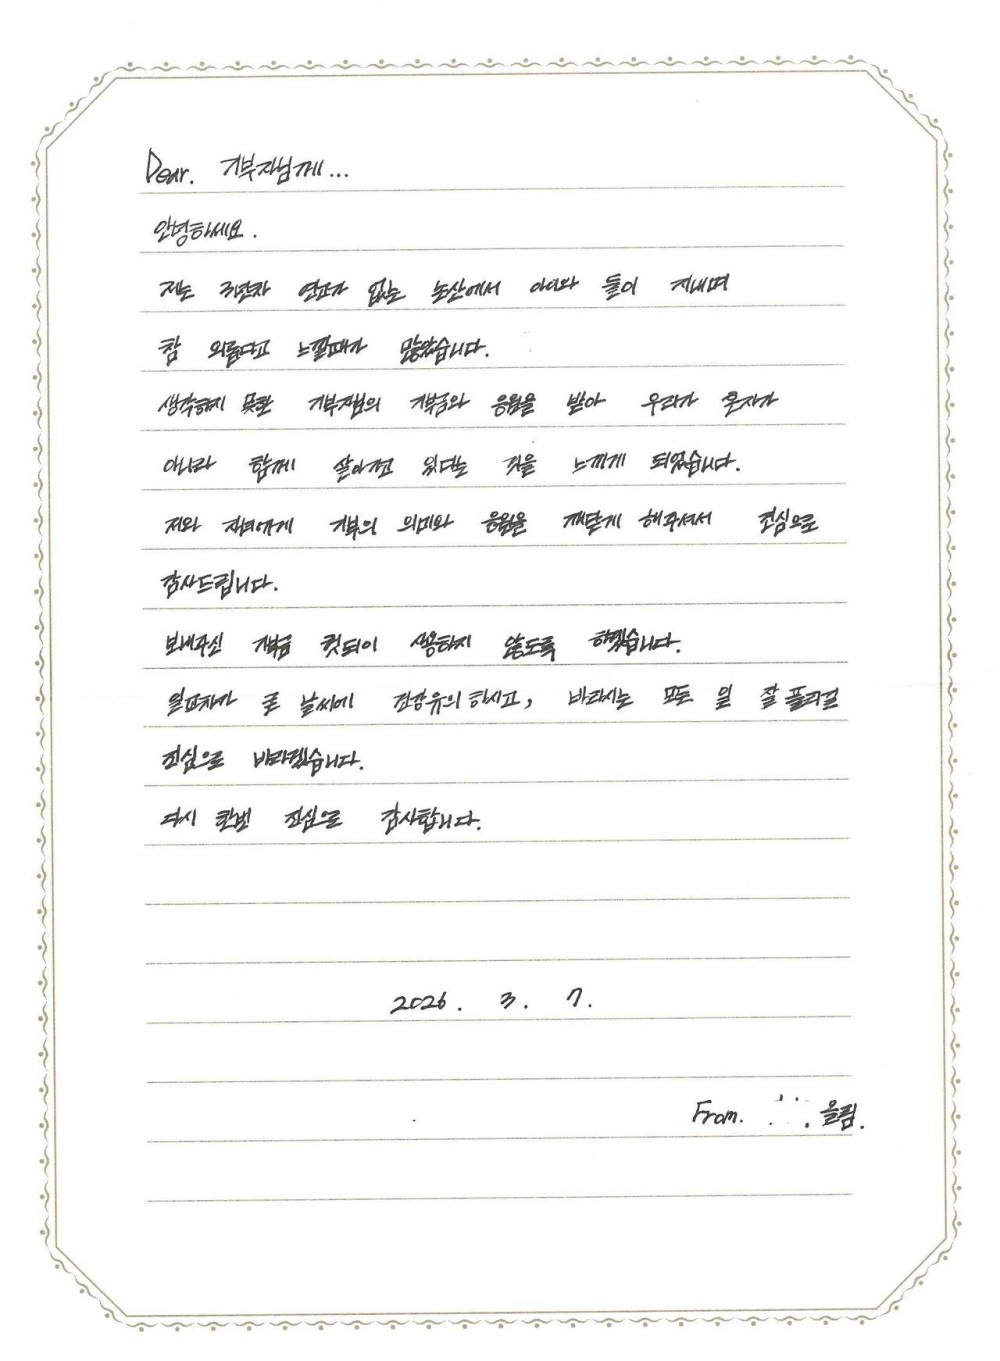 Dear. 기부자님께...
안녕하세요.
저는 연고자 없는 논산에서 아이와 둘이 지내며
참 외롭다고 느낄때가 많았습니다.
생각하지 못한 기부자님의 기부금와 응원을 받아 우리가 혼자가
아니라 함께 살아전 있다는 것을 느끼게 되었습니다.
저와 자녀에게 기부의 의미와 응원을 깨닫게 해주셔서 진심으로
감사드립니다.
보내주신 기부금 헛되이 사용하지 않도록 하겠습니다.
일교차가 큰 날씨에 건강유의 하시고, 바라시는 모든 일 잘 풀리길
진심으로 바라겠습니다.
다시 한번 진심으로 감사합니다.
2026. 3. 7.
From. 올림.